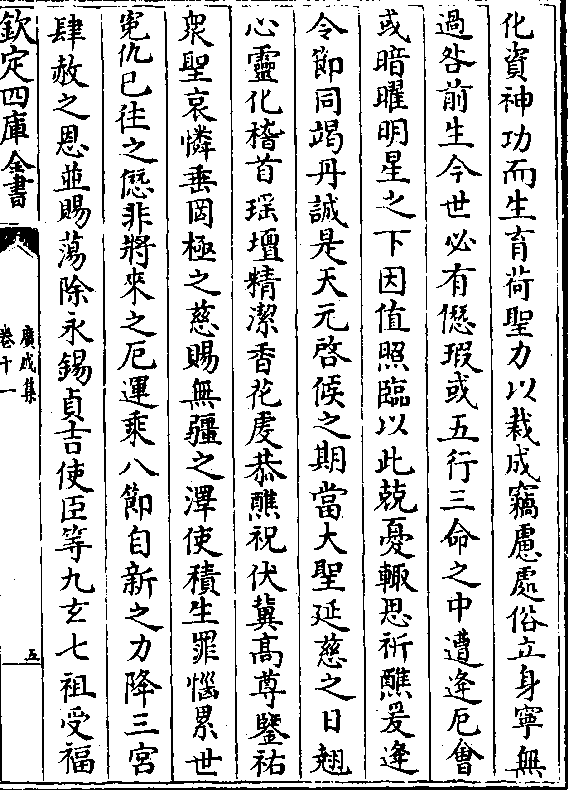 化資神功而生育荷聖力以栽成竊慮處俗立身寧無
過咎前生今世必有愆瑕或五行三命之中遭逢厄會
或暗曜明星之下因值照臨以此兢憂輙思祈醮爰逢
令節同竭丹誠是天元啓候之期當大聖延慈之日翹
心靈化稽首瑶壇精潔香花虔恭醮祝伏冀高尊鑒祐
衆聖哀憐垂罔極之慈賜無疆之澤使積生罪惱累世
寃仇已往之愆非將來之厄運乘八節自新之力降三宮
肆赦之恩並賜蕩除永錫貞吉使臣等九玄七祖受福
欽定四庫全書
廣成集
卷十一
五